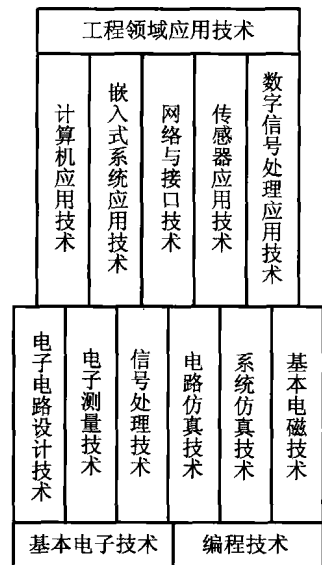 工程领域应用技术
计算机应用技术
嵌入式系统应用技术
网络与接口技术
传感器应用技术
数字信号处理应用技术
电子电路设计技术
电子测量技术
信号处理技术
电路仿真技术
系统仿真技术
基本电磁技术
基本电子技术
编程技术